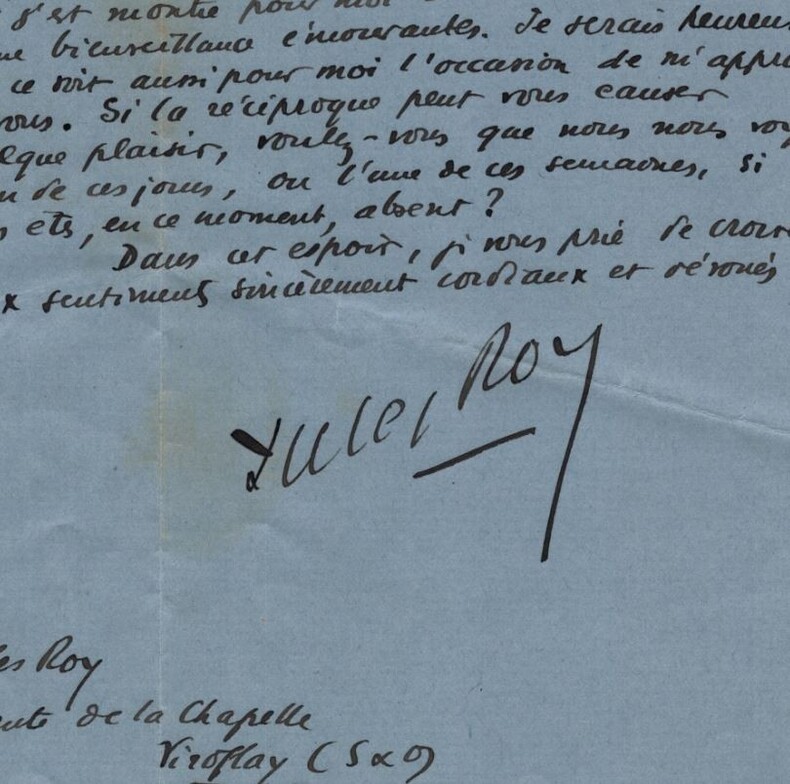 s'est montré pour moi
bienveillance émouvantes. Je serais heureux
ce soit aussi pour moi l'occasion de m'appro
vous. Si la réciproque peut vous causer
elque plaisir, voulez-vous que nous nous voy
n de ces jours, ou l'une de ces semaines, si
s êtes, en ce moment, absent ?
Dans cet espoir, je vous prie de croire
x sentiments sincèrement cordiaux et dévoués
Jules Roy
es Roy
ente de la Chapelle
Viroflay (S & O)